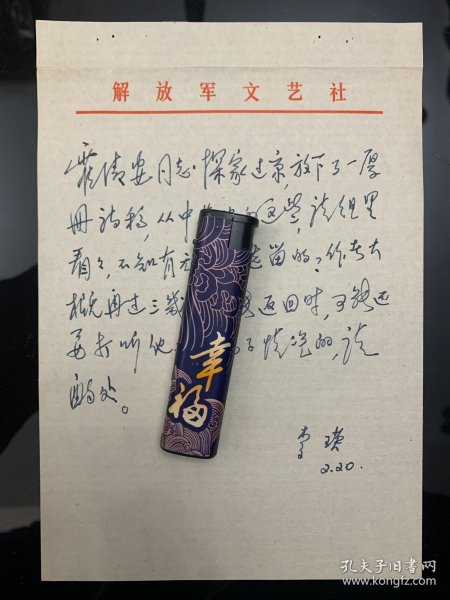 解放军文艺社
同志探家过京,放下了一厚
册诗稿,从中 这些,请组里
看看,不知有无 选留的?作者大
概再过三 返回时,可能还
要打听他 情况的,请
酌处。
李瑛
2.20.
幸福
孔夫子旧书网
www.kongfz.com